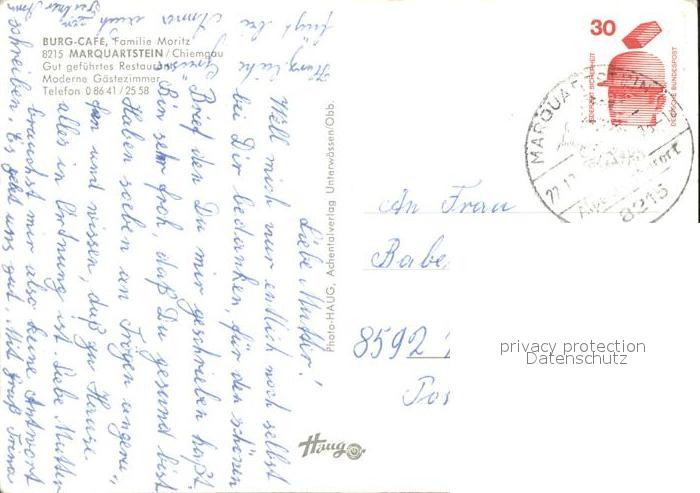 BURG-CAFE, Familie Moritz
8215 MARQUARTSTEIN / Chiemgau
Gut geführtes Restaurant
Moderne Gästezimmer
Telefon 0 86 41 / 25 58
Photo-HAUG, Achentalverlag Unterwössen/Obb.
Haug
Liebe Mutter!
Will mich nur endlich noch selbst
bei Dir bedanken, für den schönen
Brief den Du mir geschrieben hast.
Bin sehr froh, daß Du gesund bist
Haben soeben an
und wissen, daß zu Hause
alles in Ordnung ist. Liebe Mutter
brauchst mir also keine Antwort
schreiben. Es geht uns gut. Mit Gruß
30
JEDERZEIT SICHERHEIT
DEUTSCHE BUNDESPOST
MARQUARTSTEIN
8215
An Frau
Babe
8592
Pos
privacy protection
Datenschutz